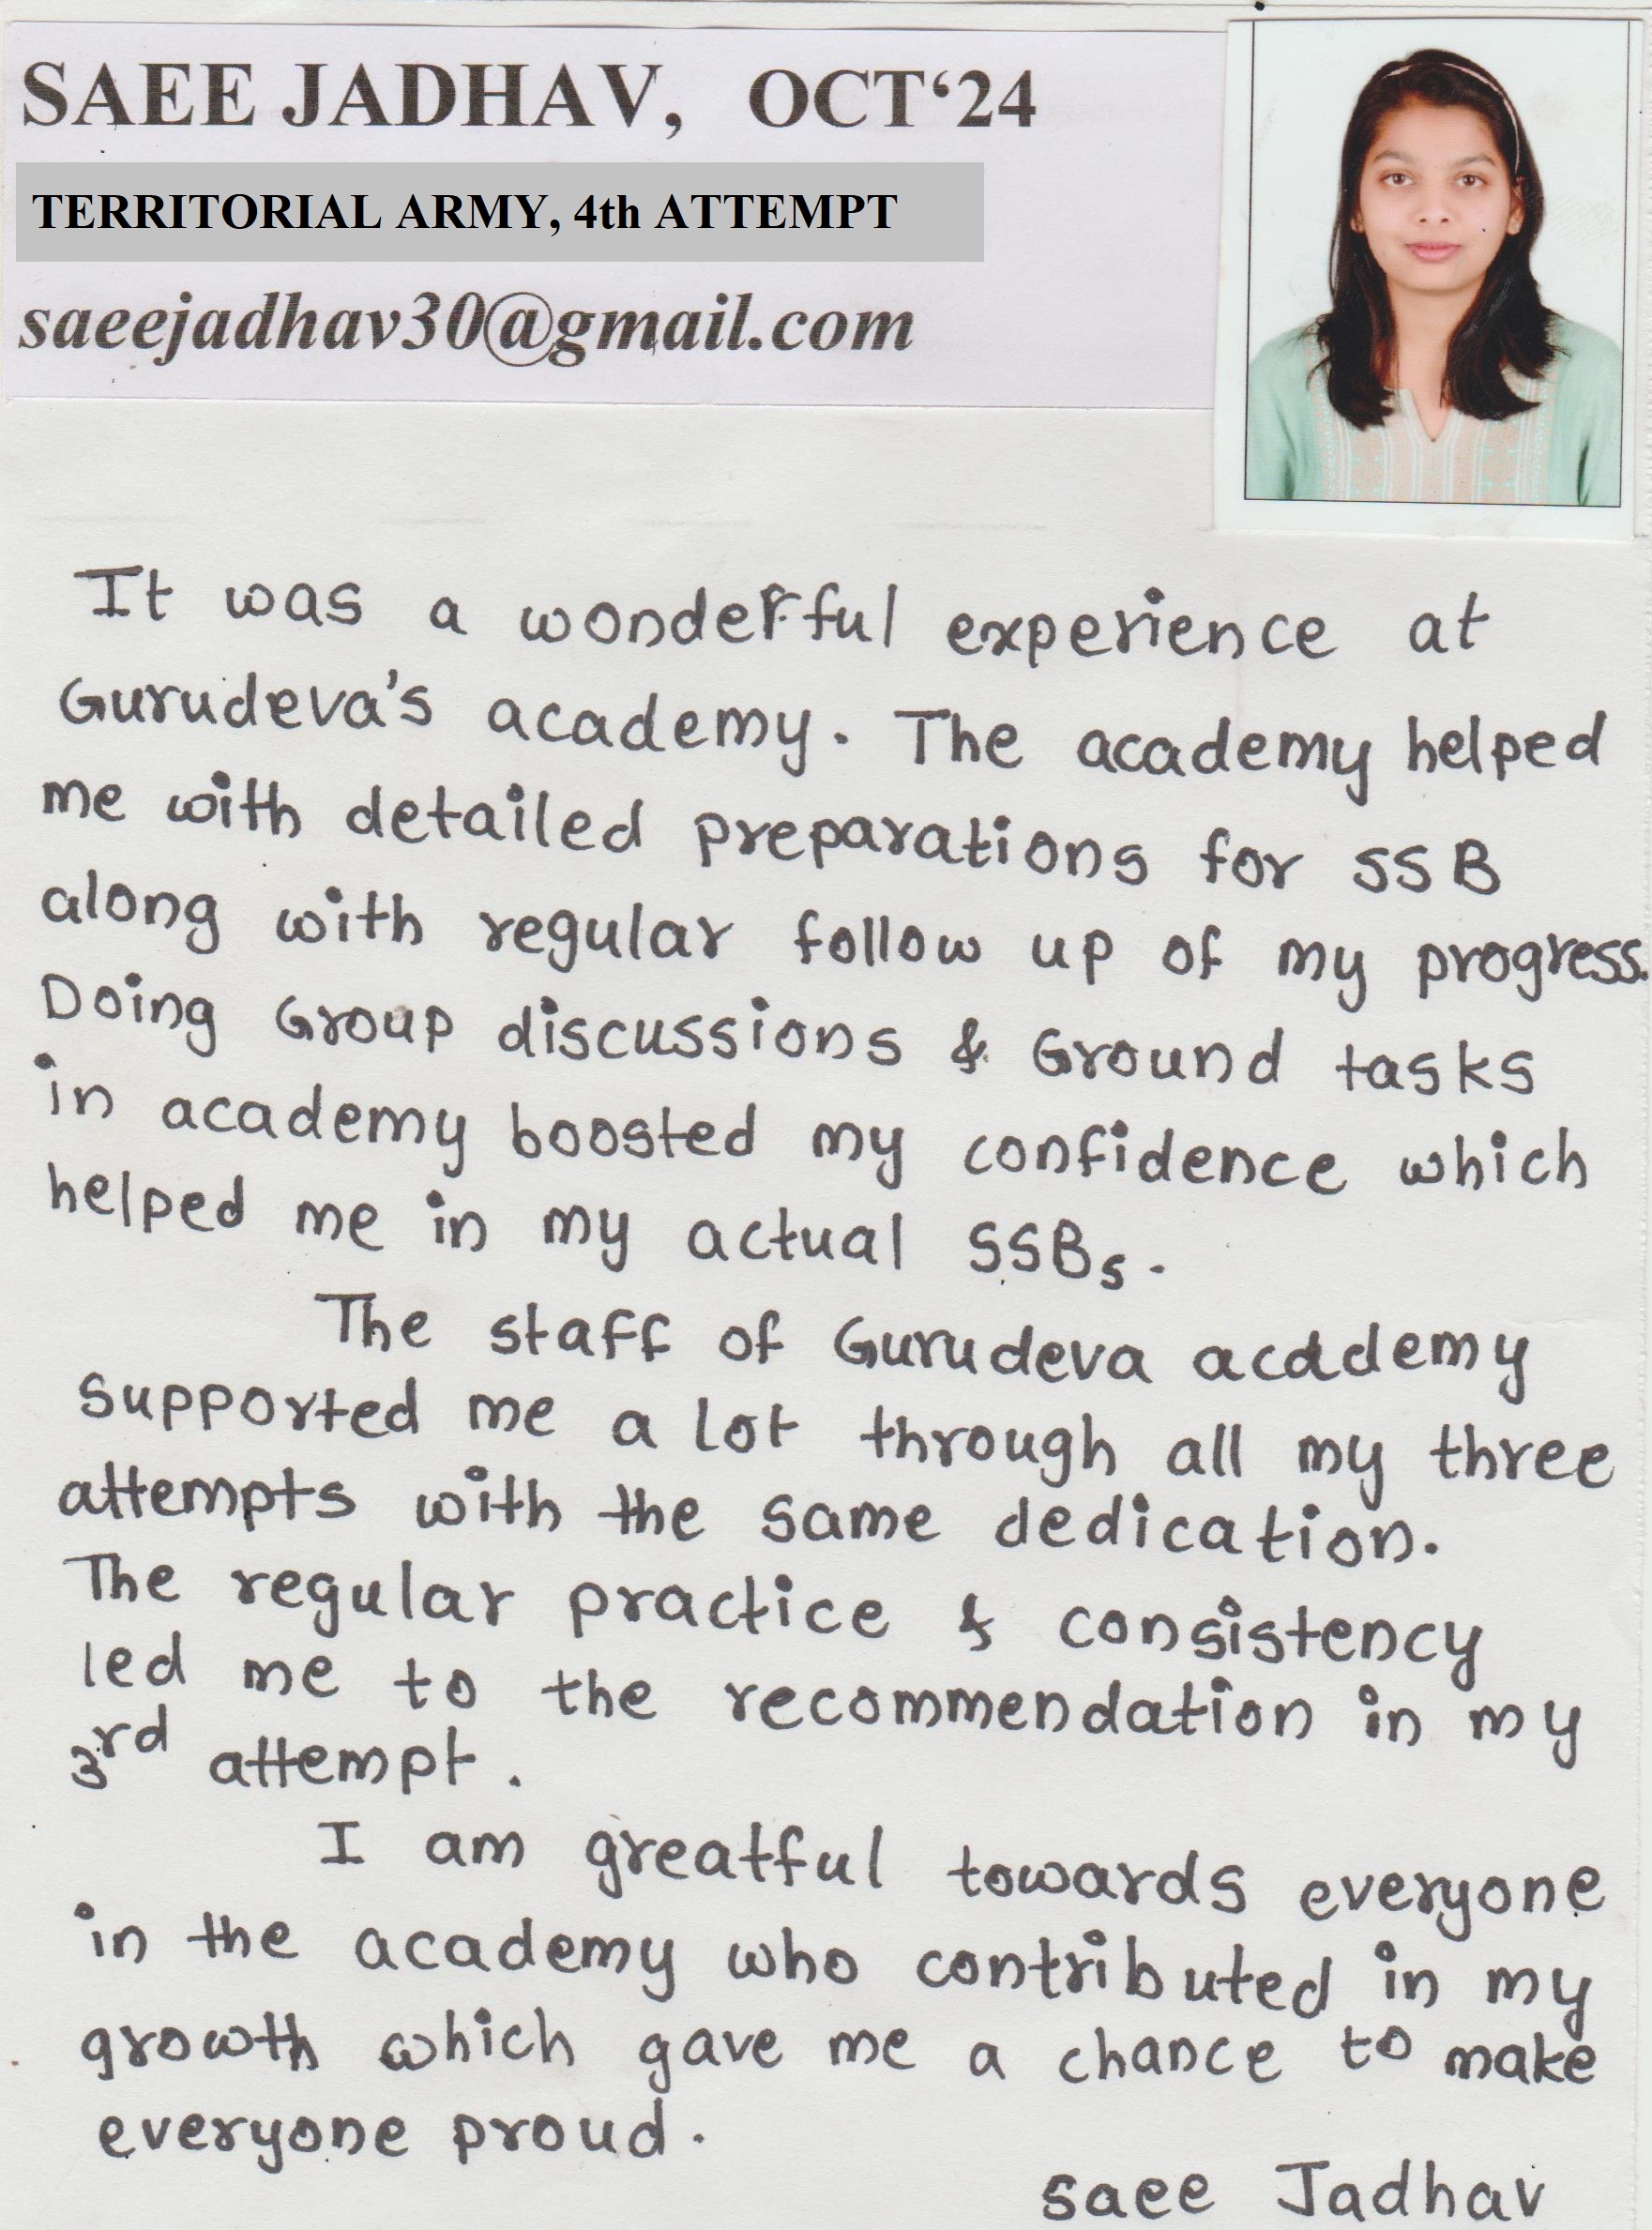 SAEE JADHAV, OCT‘24
TERRITORIAL ARMY, 4th ATTEMPT
saeejadhav30@gmail.com
It was a wonderful experience at
Gurudeva's academy. The academy helped
me with detailed preparations for SSB
along with regular follow up of my progress.
Doing Group discussions & Ground tasks
in academy boosted my confidence which
helped me in my actual SSBs.
The staff of Gurudeva academy
supported me a lot through all my three
attempts with the same dedication.
The regular practice & consistency
led me to the recommendation in my
3rd attempt.
I am greatful towards everyone
in the academy who contributed in my
growth which gave me a chance to make
everyone proud.
Saee Jadhav